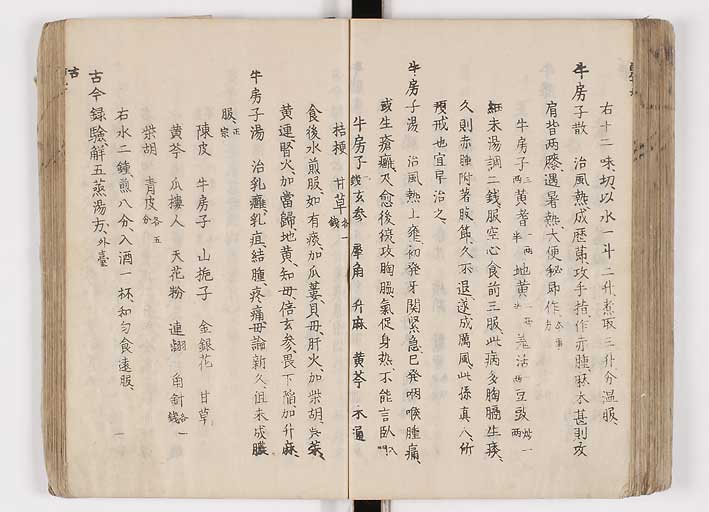 右十二味切以水一斗二升煮取三升分温服
牛房子散 治風熱成歴節攻手指作赤腫麻木甚則攻
肩背两膝遇暑熱大便秘即作方本事
牛房子三两黄耆一两半地黄一两半羗活一两豆豉炒一两
細末湯調二錢服空心食前三服此病多胸膈生痰
久則赤腫附著肢節久不退遂成厲風此係真人所
預戒也宜早治之
牛房子湯 治風熱上壅初発牙関緊急已発咽喉腫痛
或生瘡癰及愈後後攻胸膈氣促身热不能言臥
牛房子錢玄参 犀角 升麻 黄芩 木通
桔梗 甘草各一錢
食後水煎服如有痰加瓜蔞貝毋肝火加柴胡呉茱
黄連腎火加當歸地黄知毋倍玄参畏下陥加升麻
牛房子湯 治乳癰乳疽結腫疼痛毋論新久但未成膿
服正宗
陳皮 牛房子 山梔子 金銀花 甘草
黄芩 瓜摟人 天花粉 連翹 角針各一錢
柴胡 青皮各五分
右水二鐘煎八分入酒一杯和匀食遠服
古今録驗解五蒸湯方外臺
古